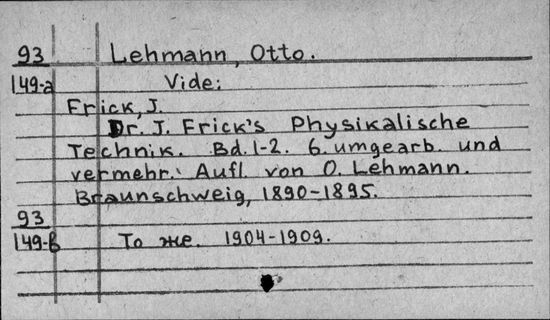 93 Lehmann, Otto.
149-a Vide:
Frick, J.
Dr. J. Frick's Physikalische
Technik. Bd. 1-2. 6. umgearb. und
vermehr. Aufl. von O. Lehmann.
Braunschweig, 1890-1895.
93
149-в То же. 1904-1909.